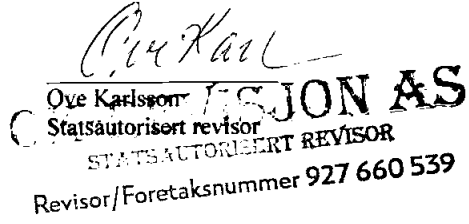 Ove Karlsson
Statsautorisert revisor
JON AS
STATSAUTORISERT REVISOR
Revisor/Foretaksnummer 927 660 539